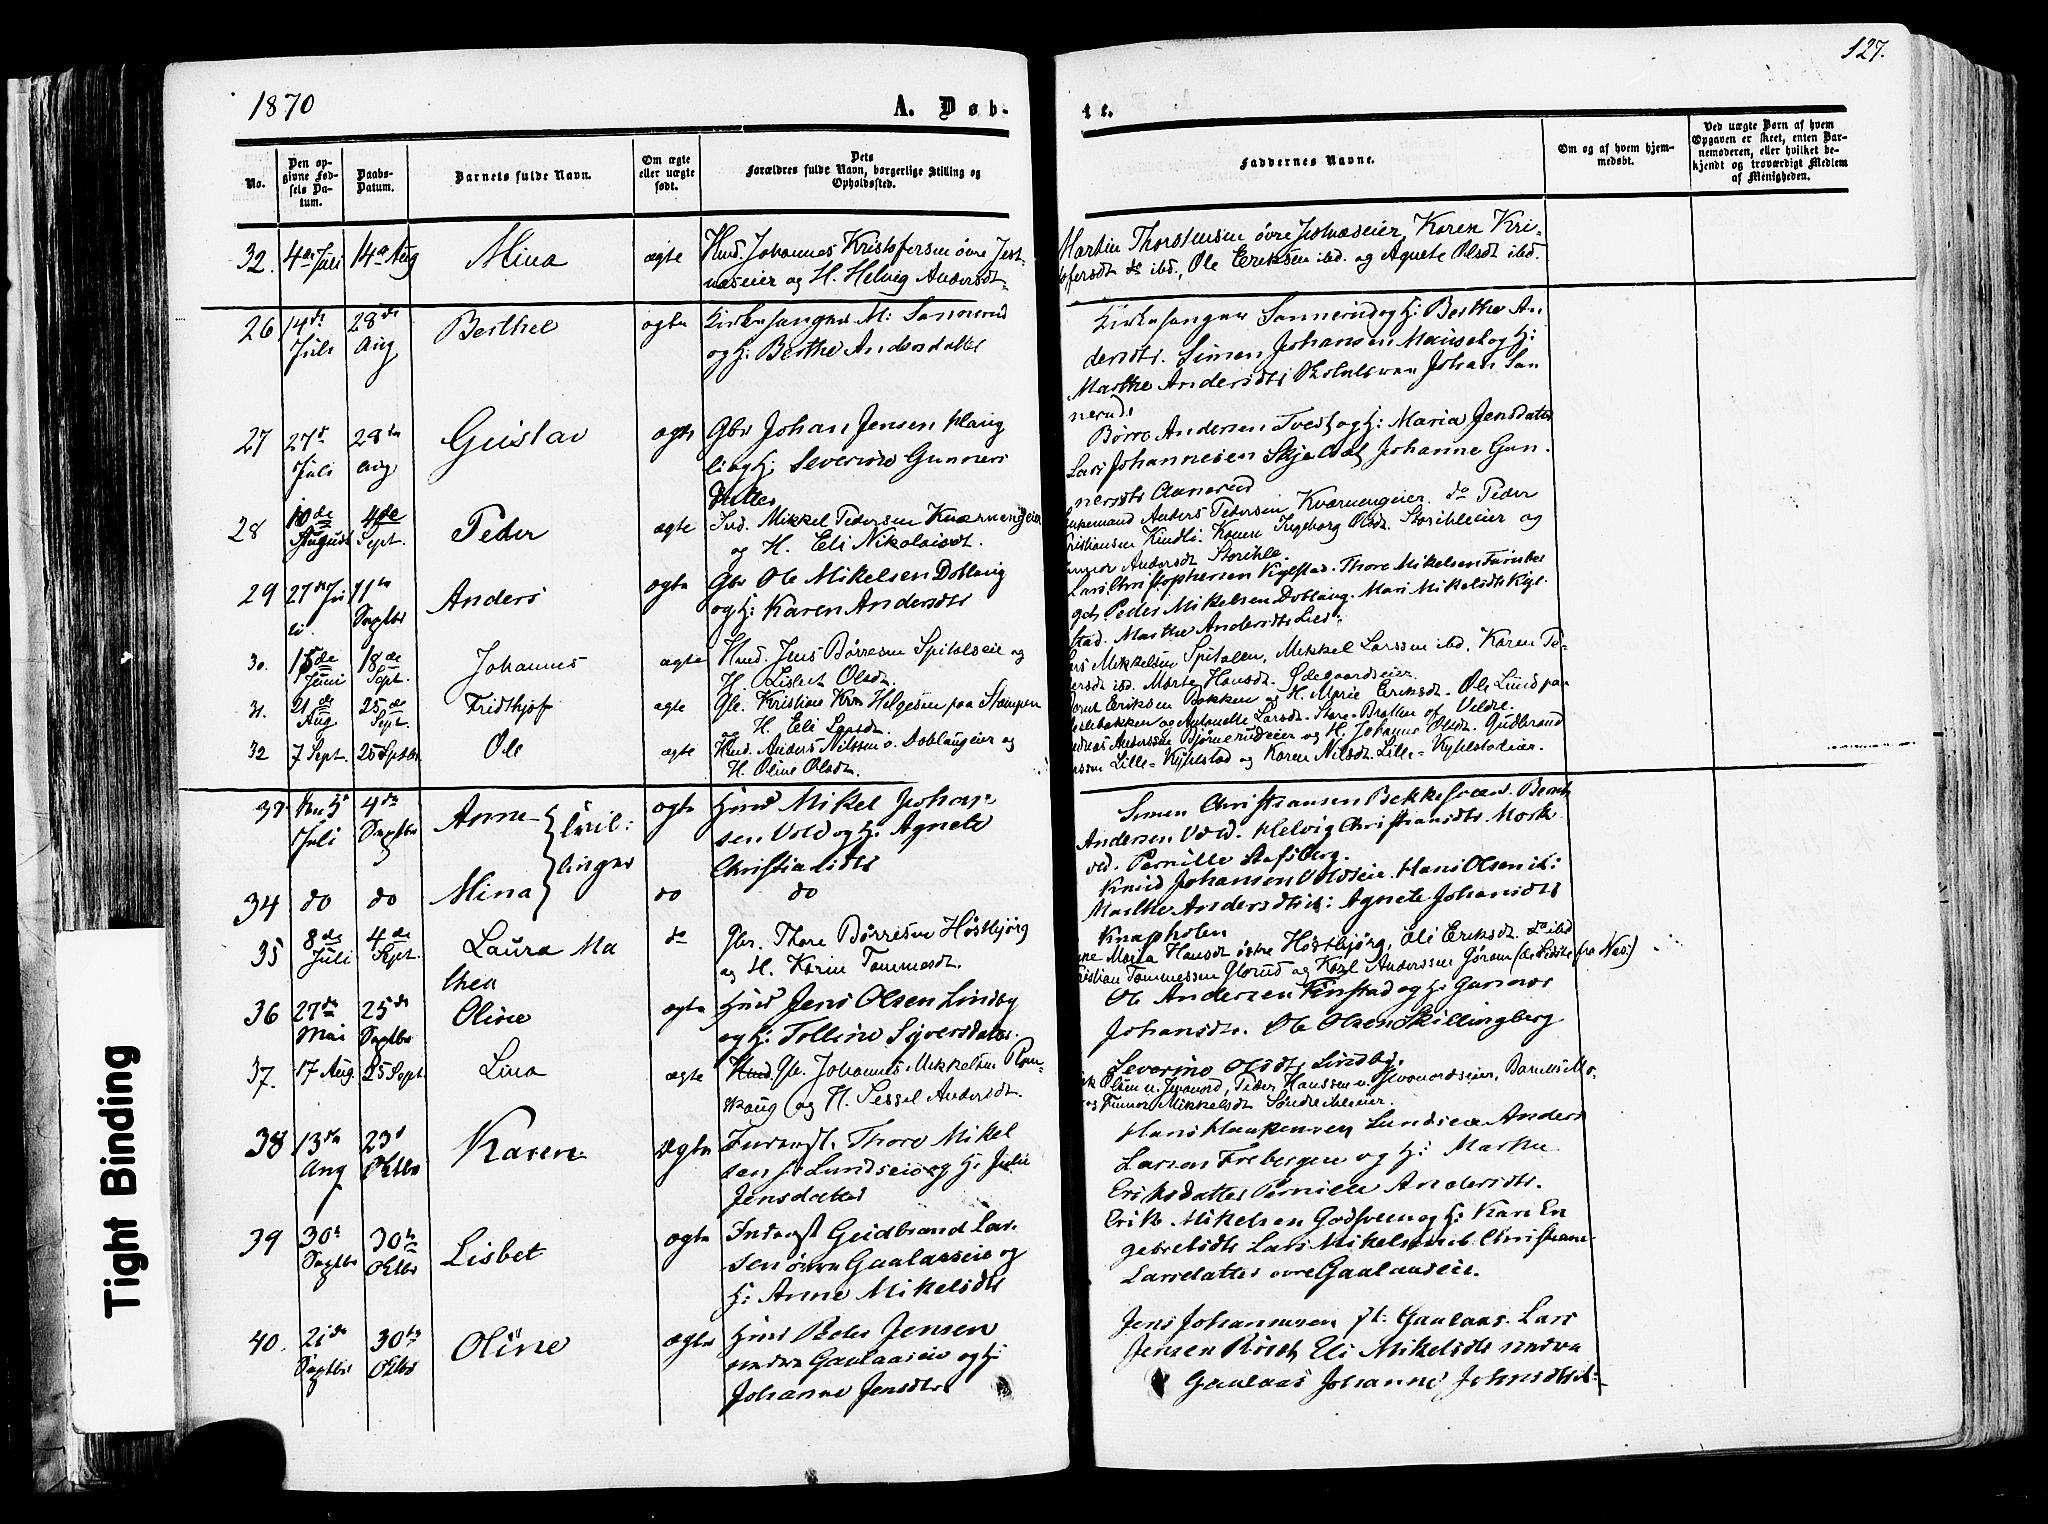 127.
1870
A. Døb-
te.
No.
Den opgivne Fødsels Datum.
Daabs-Datum.
Barnets fulde Navn.
Om ægte eller uægte født.
Dets Forældres fulde Navn, borgerlige Stilling og Opholdssted.
Faddernes Navne.
Om og af hvem hjemmedøbt.
Ved uægte Børn af hvem Opgaven er skeet, enten Barnemoderen, eller hvilket bekjendt og troværdigt Medlem af Menigheden.
32. 4de Juli 14de Aug Mina ægte Hmd. Johannes Kristofersen øvre Jest-
næseier og H. Helvig Andersdt.
Martin Thorstensen øvre Jestnæseier, Karen Kri-
stofersdt do ibd., Ole Eriksen ibd. og Agnete Olsdt ibd.
26 14de Juli 28de Aug Berthe ægte Kirkesanger M: Sannerud
og H: Berthe Andersdatter
Kirkesanger Sannerud og H: Berthe An
dersdtr. Simen Johansen Mausel og H:
Marthe Andersdtr Johan San
nerud.
27 27de Juli 28de Aug Gustav ægte Gbr Johan Jensen Haug
li og H: Severine Gunners
datter
Børre Andersen Tvedt og H: Maria Jensdatter
Lars Johannesen Skjeldal Johanne Gun-
nersdtr Aanerud
28 10de August 4de Sept. Peder ægte Ind. Mikkel Pedersen Kværnengeier
og H. Eli Nikolaisdt.
Anders Pedersen Kværnengeier. do Peder
Kristiansen Kindli. Karen Ingeborg Olsdt. Storihleeier og
Andersdt Storihle.
29 27de Juli 11te Septbr Anders ægte Gbr Ole Mikelsen Doblaug
og H: Karen Andersdtr
Lars Christophersen Kyllstad. Thore Mikelsen
Peder Mikelsen Doblaug. Mari Mikelsdtr Kyl-
stad. Marthe Andersdtr Lied.
30. 15de Juni 18de Sept. Johannes ægte Hmd. Jens Børresen Spitalseie og
H. Lisbet Olsdt.
Mikkelsen Spitalen, Mikkel Larssen ibd, Karen Pe-
dersdt ibd. Marte Hansdt. Ødegaardseier.
31. 21de Aug 25de Sept. Fridthjof ægte Gbr. Kristian Helgesen paa Stampen
H. Eli Larsdt.
Eriksen Bakken og H. Marie Eriksdt. Ole Lund paa
og Antonette Larsdt. Store-Bratten af Veldre.
32 7 Sept. 25 Septbr Ole ægte Hmd. Anders Nilssen o. Doblaugeier og
H. Oline Olsdt.
Anderssen Bjørnerudeier og H. Johanne Olsdt. Gudbrand
Lille-Kyhlstad og Karen Nilsdt. Lille-Kyhlstadeier.
33 Juli 4de Septbr Anne } Tvil: ægte Hmd Mikel Johan-
sen Vold og H: Agnete
Christiansdtr
Simen Christiansen Bekkesveen. Bernt
Andersen Vold. Helvig Christiansdtr Mork
ved. Pernille Stafsberg.
34 do do Mina } linger do do
Knud Johansen Voldseie. Hans Olsen ib:
Marthe Andersdtr ib: Agnete Johansdtr
Knapholen
35 8de Juli 4de Sept. Laura Ma
thea do Gbr. Thore Børresen Høstbjørg
og H. Karin Tommesdt.
Maria Hansdt østre Høstbjørg, Eli Eriksdt. do ibd
Kristian Tommessen Glorud og Karl Anderssen Gørum (de sidste fra Nes)
36 27de Mai 25de Septbr Oline ægte Hmd Jens Olsen Lindby
og H: Tolline Syversdatter.
Ole Andersen Finstad og H: Gunnor
Johansdtr. Ole Olsen Skillingberg
Severine Olsdtr Lindby.
37. 17 Aug. 25 Sept. Lina ægte Gbr. Johannes Mikkelsen Rom-
skaug og H. Sessel Andersdt.
Olsen n. Jemerud, Peder Hanssen
Mikkelsdt
38 13de Aug 23de Oktbr Karen ægte Inderst. Thore Mikel
sen Lundseie og H: Julie
Jensdatter
Hans Haakensen Lundseie Anders
Larsen Freberger og H: Marthe
Eriksdatter Pernille Andersdtr.
39 30te Septbr 30te Oktbr Lisbet ægte Inderst Gudbrand Lar-
sen øvre Gaalaaseie og
H: Anne Mikelsdtr
Erik Mikelsen Godsveen og H: Kari En
gebretsdtr Lars Mikelsen ib. Christiane
Larsdatter øvre Gaalaaseie.
40. 21de Septbr 30te Oktbr Oline ægte Hmd Peder Jensen
nedre Gaalaaseie og H:
Johanne Jensdtr
Jens Johannesen Gaalaas. Lars
Jensen Røset Eli Mikelsdtr nedre
Gaalaas Johanne Johnsdtr ib:
Tight Binding